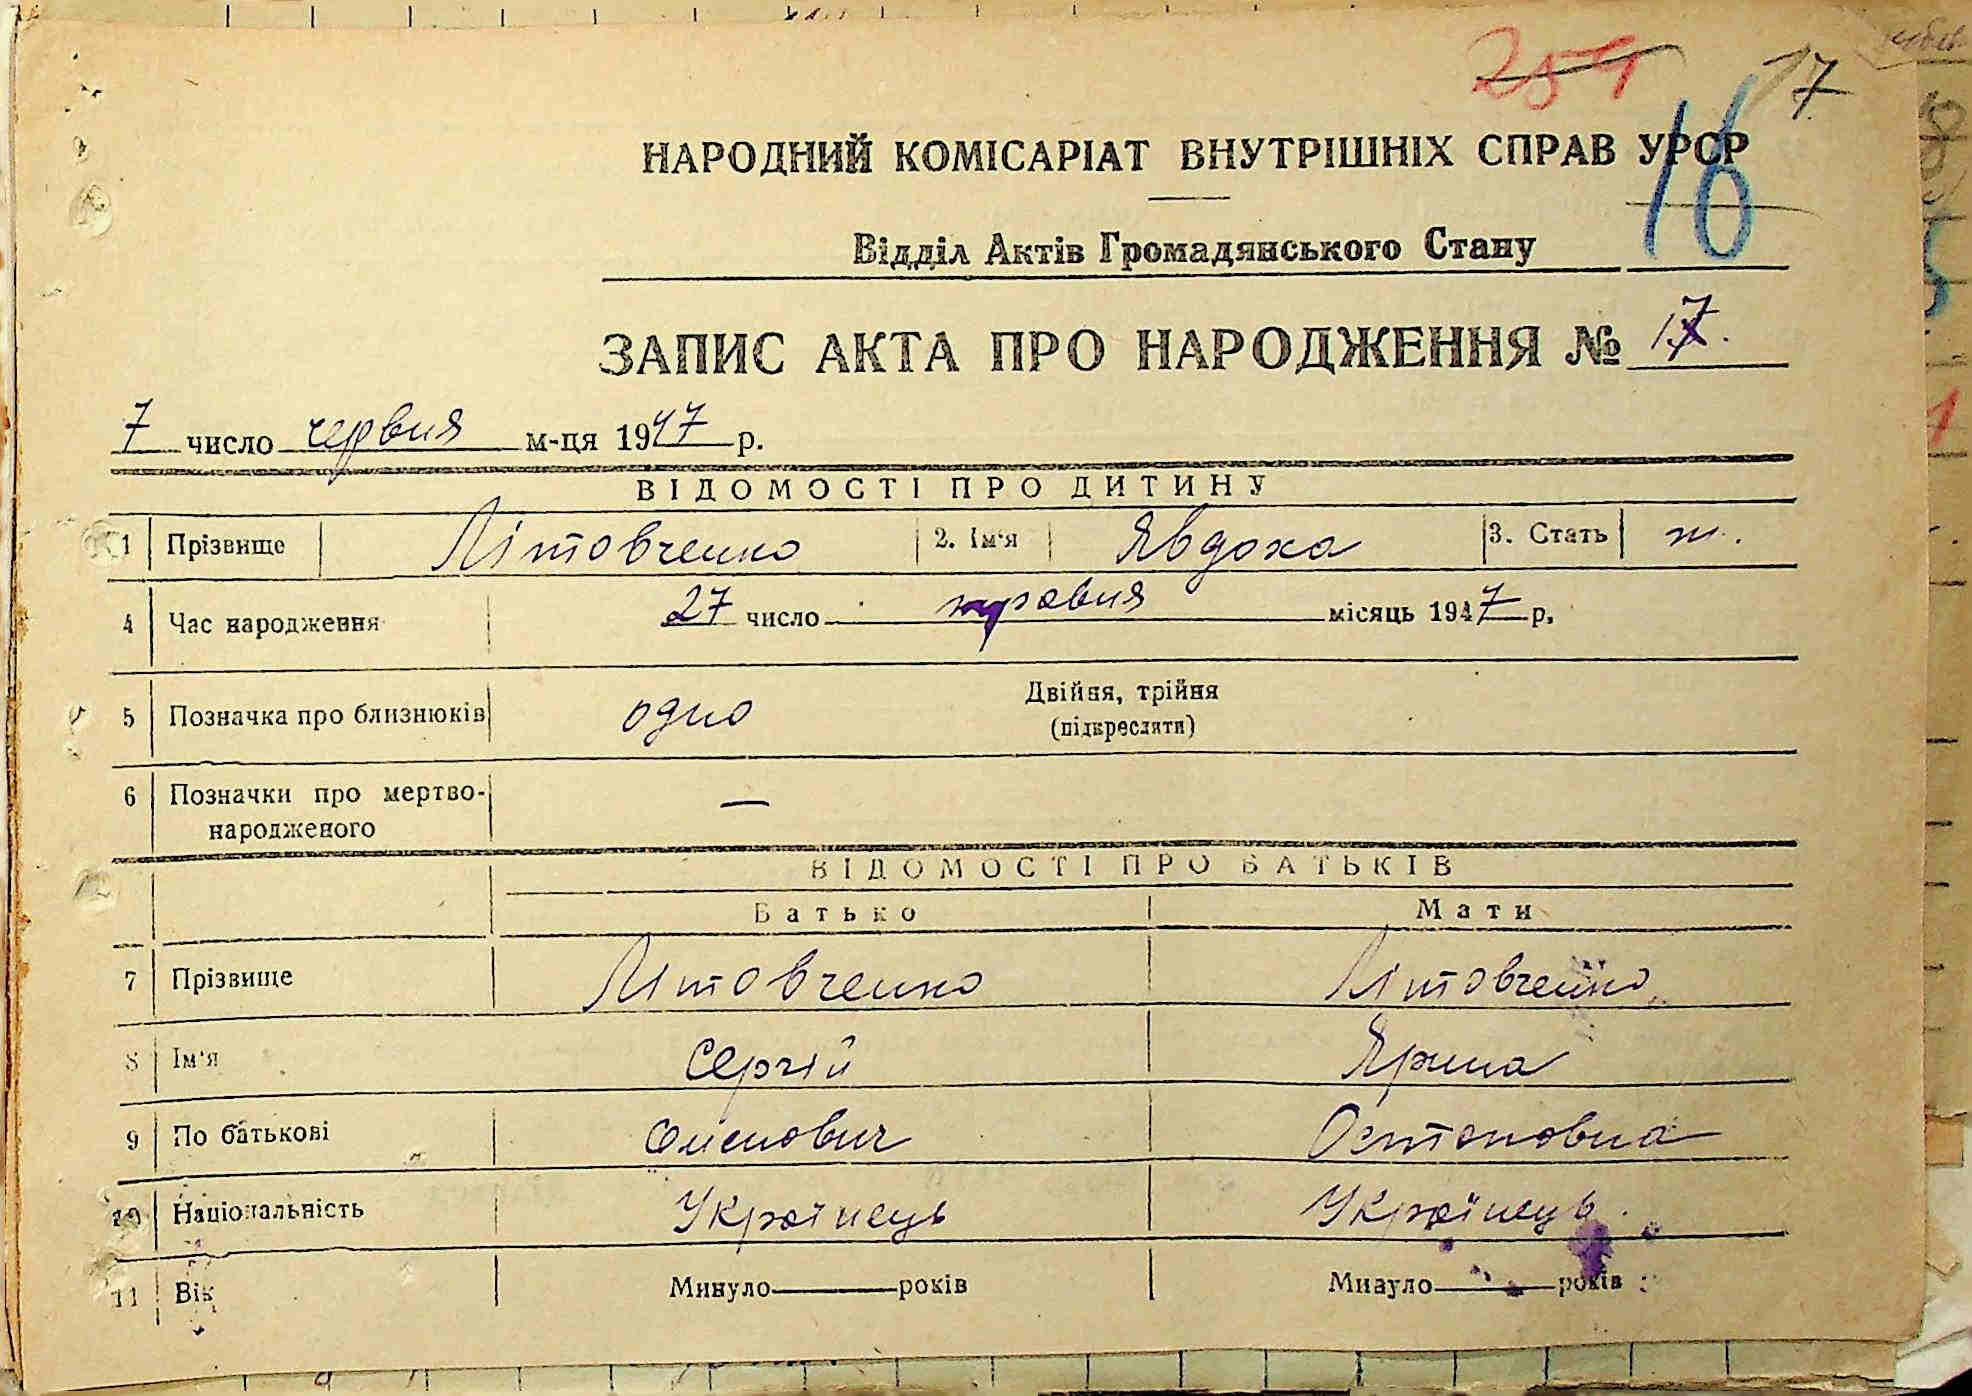 254
17.
16
НАРОДНИЙ КОМІСАРІАТ ВНУТРІШНІХ СПРАВ УРСР
Відділ Актів Громадянського Стану
ЗАПИС АКТА ПРО НАРОДЖЕННЯ № 17.
7 число червня м-ця 1947 р.
ВІДОМОСТІ ПРО ДИТИНУ
1 Прізвище Літовченко 2. Ім'я Явдоха 3. Стать ж.
4 Час народження 27 число травня місяць 1947 р.
5 Позначка про близнюків одно Двійня, трійня
(підкреслити)
6 Позначки про мертво-
народженого —
ВІДОМОСТІ ПРО БАТЬКІВ
Батько Мати
7 Прізвище Літовченко Літовченко
8 Ім'я Сергій Ярина
9 По батькові Остоповна
10 Національність Українець Українець.
11 Вік Минуло років Минуло років